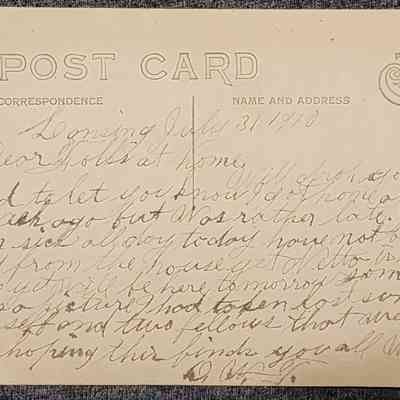 POST CARD
CORRESPONDENCE
NAME AND ADDRESS
Lansing July 31 1910
Dear Folks at home,
Will drop a
to let you know I got home a
ago but was rather late.
sick all day today have not
from the house yet
will be here tomorrow some
picture I had taken last sun
self and two fellows that are
hoping this finds you all